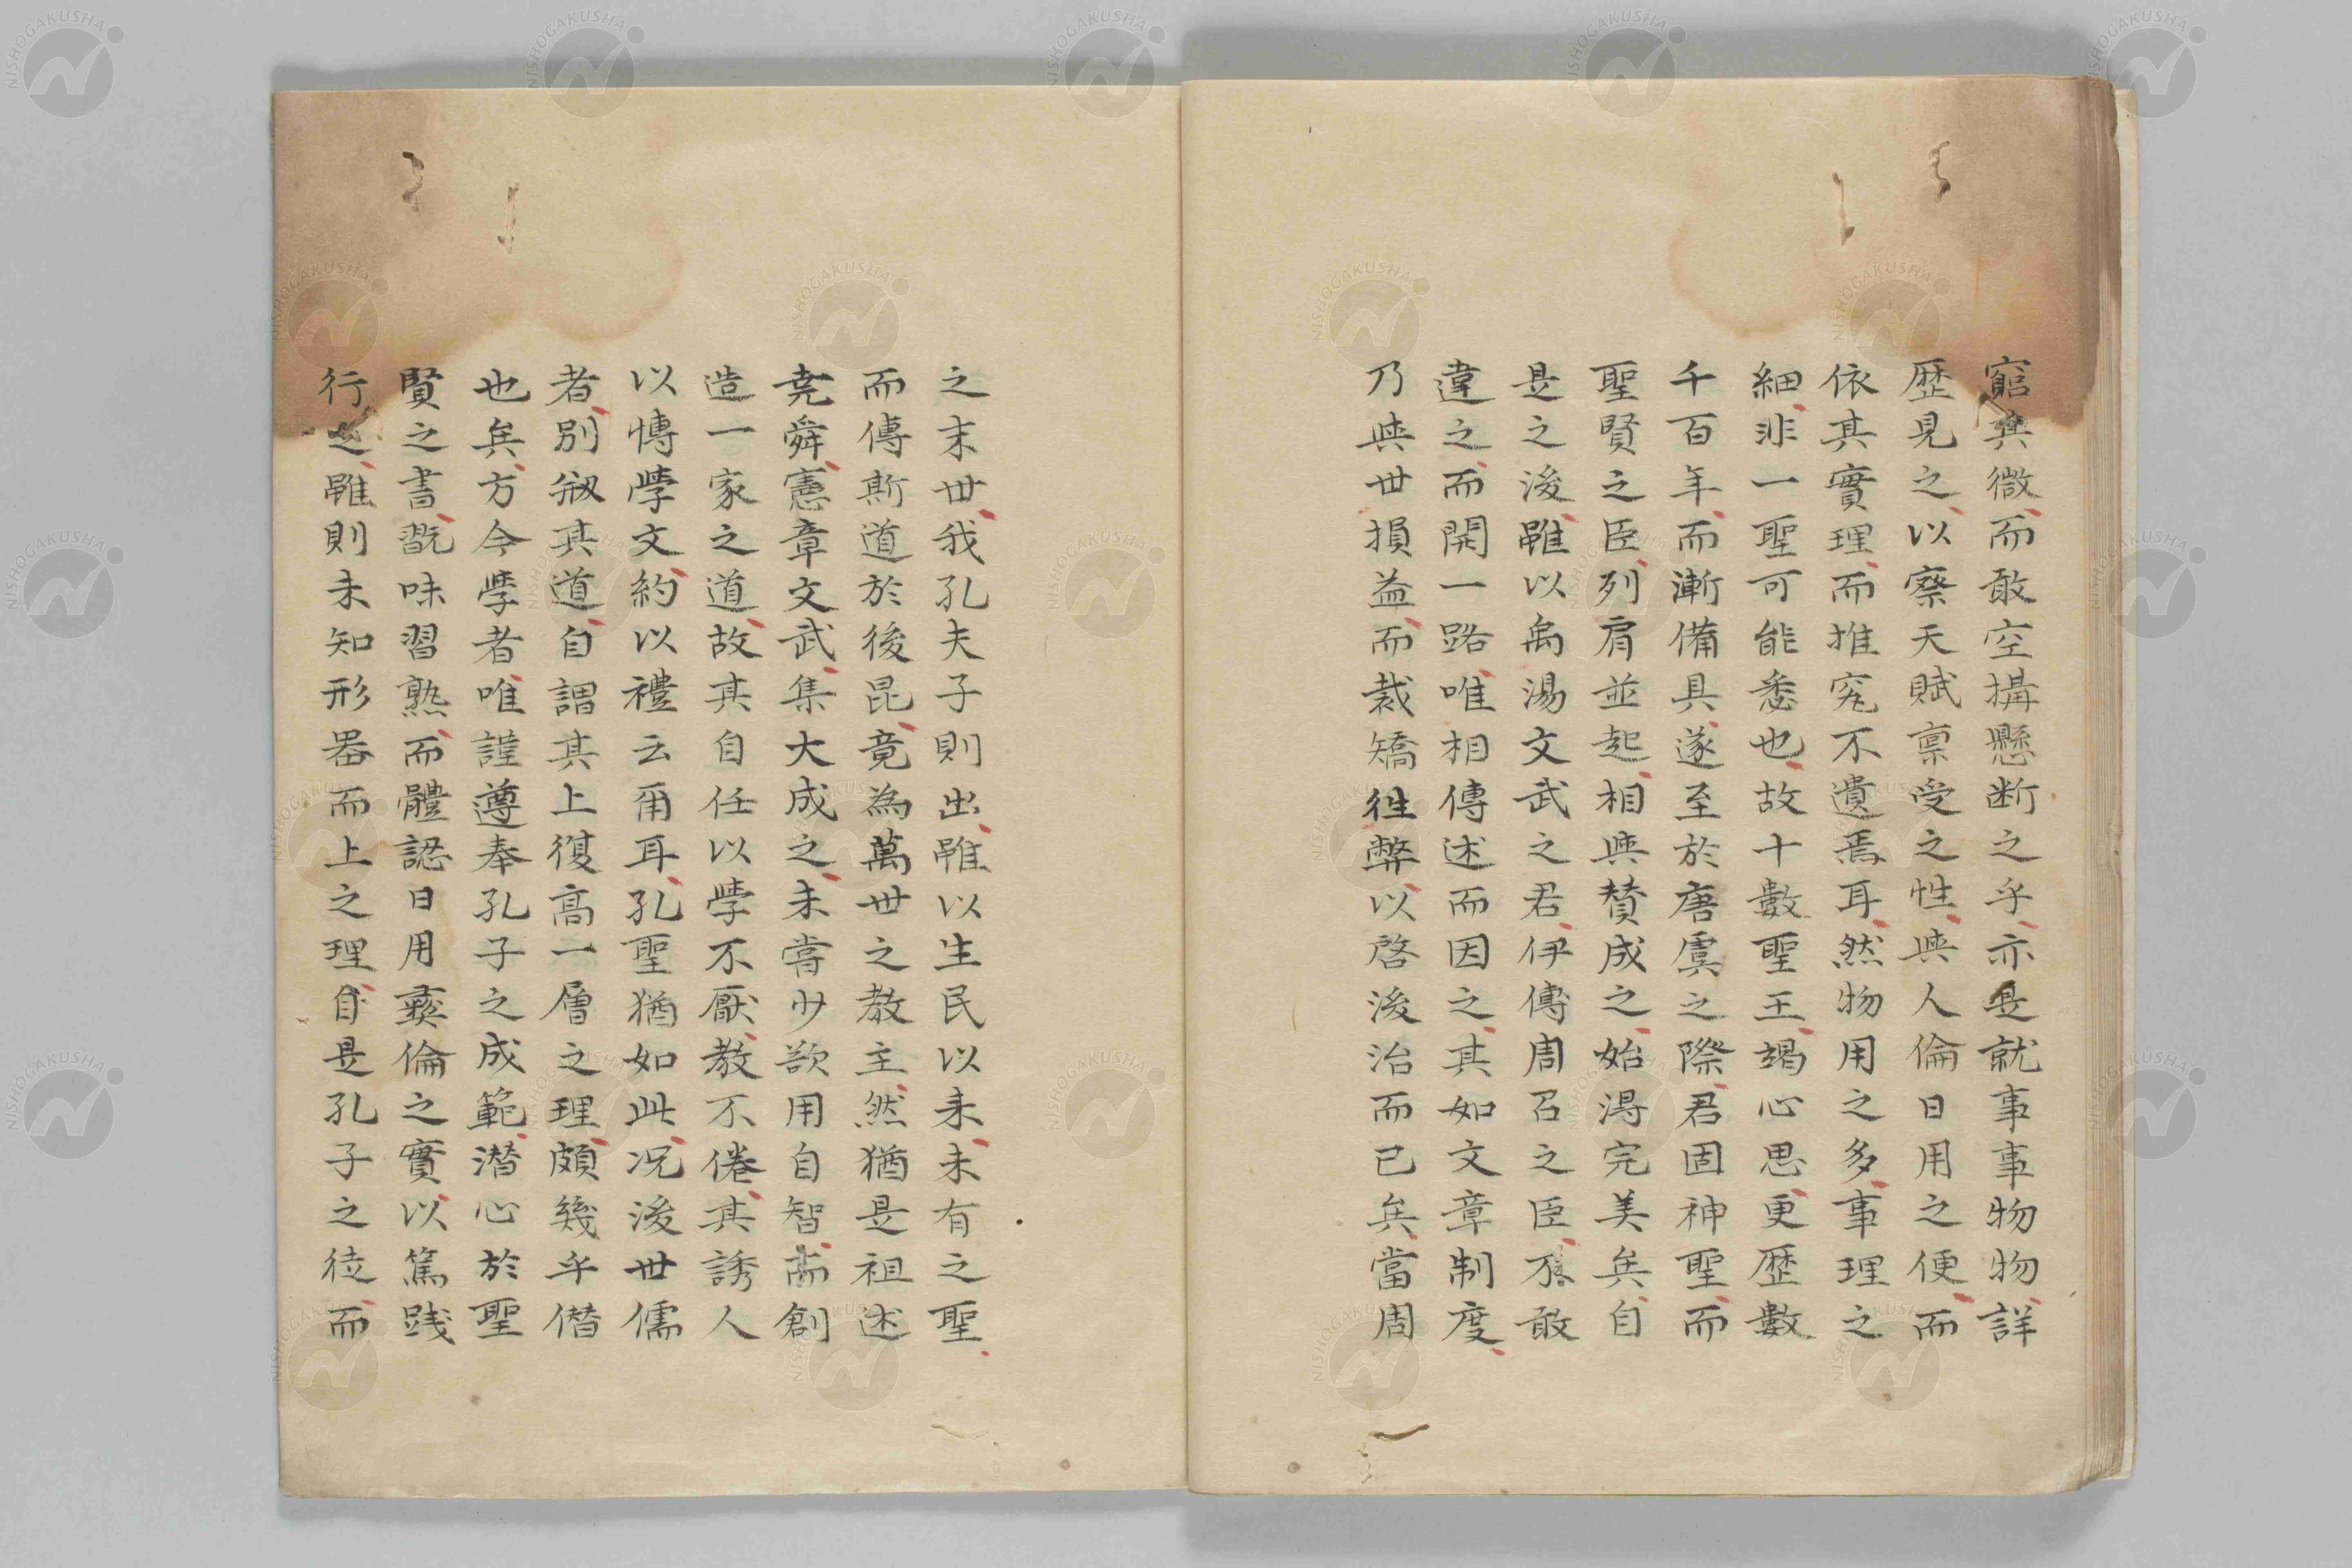 窮其微而敢空搆懸断之乎亦是就事事物物詳
歴見之以察天賦稟受之性與人倫日用之便而
依其實理而推究不遺焉耳然物用之多事理之
細非一聖可能悉也故十數聖王竭心思更歴數
千百年而漸備具遂至於唐虞之際君固神聖而
聖賢之臣列肩並起相與賛成之始得完美矣自
是之後雖以禹湯文武之君伊傅周召之臣不敢
違之而開一路唯相傳述而因之其如文章制度
乃與世損益而裁矯徃弊以啓後治而已矣當周
之末世我孔夫子則出雖以生民以来未有之聖
而傳斯道於後昆竟為萬世之教主然猶是祖述
堯舜憲章文武集大成之未嘗少欲用自智而創
造一家之道故其自任以學不厭教不倦其誘人
以博學文約以禮云爾耳孔聖猶如此况後世儒
者別剏其道自謂其上復高一層之理頗幾乎僭
也矣方今學者唯謹遵奉孔子之成範潜心於聖
賢之書翫味習熟而體認日用彛倫之實以篤践
行之雖則未知形器而上之理自是孔子之徒而
NISHOGAKUSHA